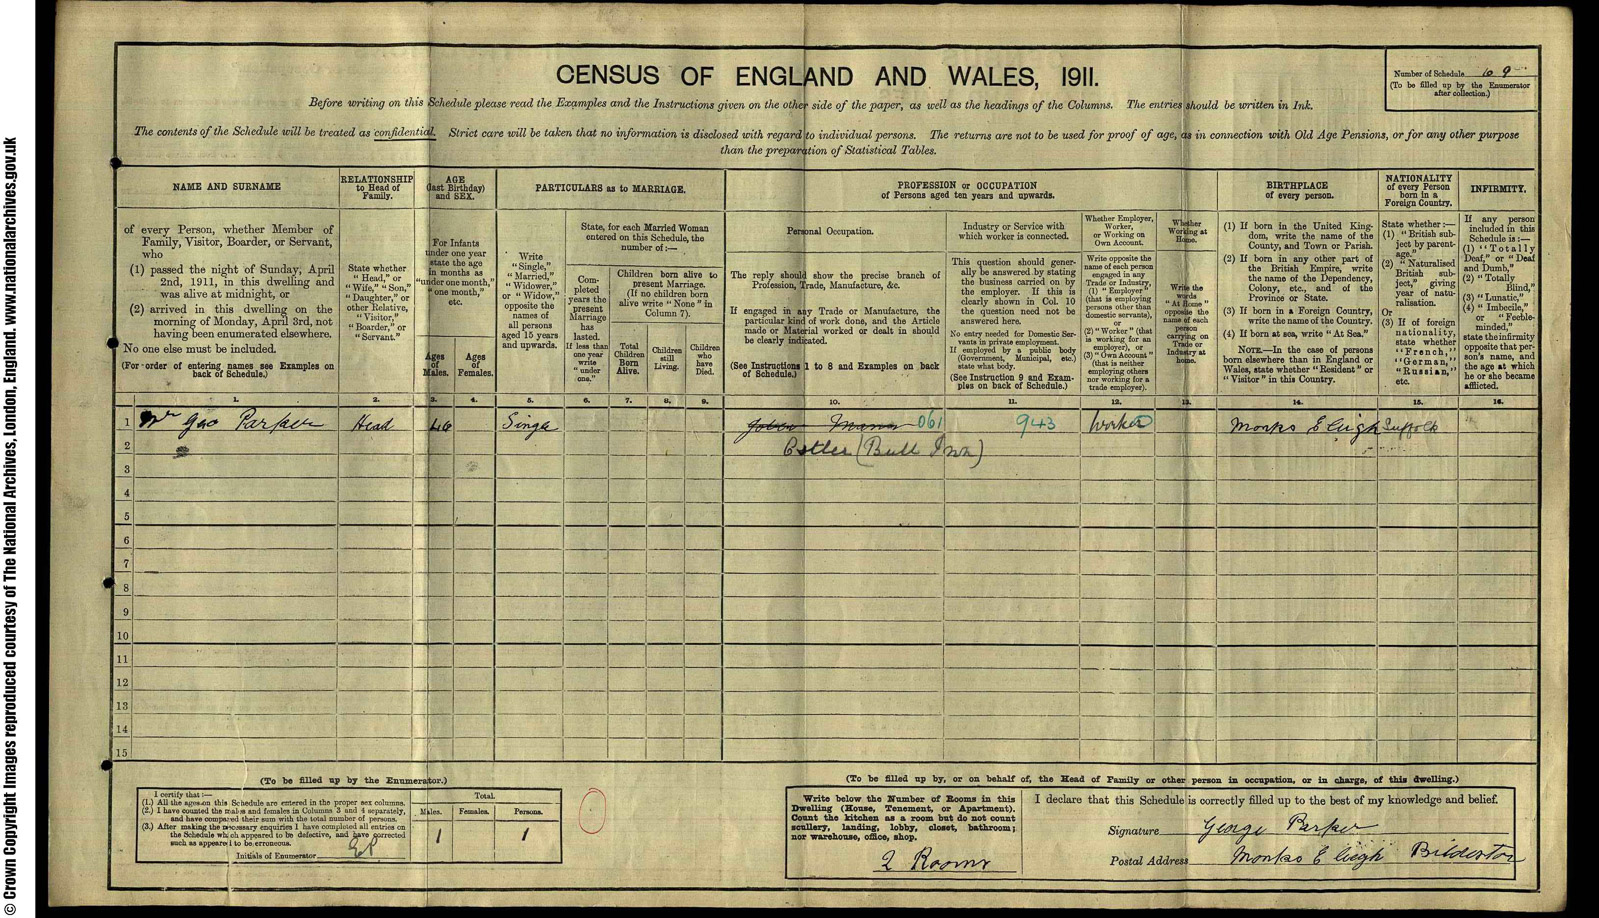 © Crown Copyright Images reproduced courtesy of The National Archives, London, England. www.nationalarchives.gov.uk
CENSUS OF ENGLAND AND WALES, 1911.
Number of Schedule 69
(To be filled up by the Enumerator
after collection.)
Before writing on this Schedule please read the Examples and the Instructions given on the other side of the paper, as well as the headings of the Columns. The entries should be written in Ink.
The contents of the Schedule will be treated as confidential. Strict care will be taken that no information is disclosed with regard to individual persons. The returns are not to be used for proof of age, as in connection with Old Age Pensions, or for any other purpose
than the preparation of Statistical Tables.
NAME AND SURNAME
of every Person, whether Member of
Family, Visitor, Boarder, or Servant,
who
(1) passed the night of Sunday, April
2nd, 1911, in this dwelling and
was alive at midnight, or
(2) arrived in this dwelling on the
morning of Monday, April 3rd, not
having been enumerated elsewhere.
No one else must be included.
(For order of entering names see Examples on
back of Schedule.)
RELATIONSHIP
to Head of
Family.
State whether
"Head," or
"Wife," "Son,"
"Daughter," or
other Relative,
"Visitor,"
"Boarder," or
"Servant."
AGE
(last Birthday)
and SEX.
For Infants
under one year
state the age
in months as
"under one month,"
"one month,"
etc.
Ages
of
Males.
Ages
of
Females.
PARTICULARS as to MARRIAGE.
Write
"Single,"
"Married,"
"Widower,"
or "Widow,"
opposite the
names of
all persons
aged 15 years
and upwards.
State, for each Married Woman
entered on this Schedule, the
number of:—
Com-
pleted
years the
present
Marriage
has
lasted.
If less than
one year
write
"under
one."
Children born alive to
present Marriage.
(If no children born
alive write "None" in
Column 7).
Total
Children
Born
Alive.
Children
still
Living.
Children
who
have
Died.
PROFESSION or OCCUPATION
of Persons aged ten years and upwards.
Personal Occupation.
The reply should show the precise branch of
Profession, Trade, Manufacture, &c.
If engaged in any Trade or Manufacture, the
particular kind of work done, and the Article
made or Material worked or dealt in should
be clearly indicated.
(See Instructions 1 to 8 and Examples on back
of Schedule.)
Industry or Service with
which worker is connected.
This question should gener-
ally be answered by stating
the business carried on by
the employer. If this is
clearly shown in Col. 10
the question need not be
answered here.
No entry needed for Domestic Ser-
vants in private employment.
If employed by a public body
(Government, Municipal, etc.)
state what body.
(See Instruction 9 and Exam-
ples on back of Schedule.)
Whether Employer,
Worker,
or Working on
Own Account.
Write opposite the
name of each person
engaged in any
Trade or Industry,
(1) "Employer"
(that is employing
persons other than
domestic servants),
or
(2) "Worker" (that
is working for an
employer), or
(3) "Own Account"
(that is neither
employing others
nor working for a
trade employer).
Whether
Working at
Home.
Write the
words
"At Home"
opposite the
name of each
person
carrying on
Trade or
Industry at
home.
BIRTHPLACE
of every person.
(1) If born in the United King-
dom, write the name of the
County, and Town or Parish.
(2) If born in any other part of
the British Empire, write
the name of the Dependency,
Colony, etc., and of the
Province or State.
(3) If born in a Foreign Country,
write the name of the Country.
(4) If born at sea, write "At Sea."
NOTE.—In the case of persons
born elsewhere than in England or
Wales, state whether "Resident" or
"Visitor" in this Country.
NATIONALITY
of every Person
born in a
Foreign Country.
State whether:—
(1) "British sub-
ject by parent-
age."
(2) "Naturalised
British sub-
ject," giving
year of natu-
ralisation.
Or
(3) If of foreign
nationality,
state whether
"French,"
"German,"
"Russian,"
etc.
INFIRMITY.
If any person
included in this
Schedule is:—
(1) "Totally
Deaf," or "Deaf
and Dumb,"
(2) "Totally
Blind,"
(3) "Lunatic,"
(4) "Imbecile,"
or "Feeble-
minded,"
state the infirmity
opposite that per-
son's name, and
the age at which
he or she became
afflicted.
1. 2. 3. 4. 5. 6. 7. 8. 9. 10. 11. 12. 13. 14. 15. 16.
1 Mr Geo Parker Head 46 Single 061 943 Worker Monks Eleigh Suffolk
2 Ostler (Bull Inn)
3
4
5
6
7
8
9
10
11
12
13
14
15
(To be filled up by the Enumerator.)
I certify that:—
(1.) All the ages on this Schedule are entered in the proper sex columns.
(2.) I have counted the males and females in Columns 3 and 4 separately,
and have compared their sum with the total number of persons.
(3.) After making the necessary enquiries I have completed all entries on
the Schedule which appeared to be defective, and have corrected
such as appeared to be erroneous.
Initials of Enumerator EP
Total.
Males. Females. Persons.
1 1
(To be filled up by, or on behalf of, the Head of Family or other person in occupation, or in charge, of this dwelling.)
Write below the Number of Rooms in this
Dwelling (House, Tenement, or Apartment).
Count the kitchen as a room but do not count
scullery, landing, lobby, closet, bathroom;
nor warehouse, office, shop.
2 Rooms
I declare that this Schedule is correctly filled up to the best of my knowledge and belief.
Signature George Parker
Postal Address Monks Eleigh Bildeston